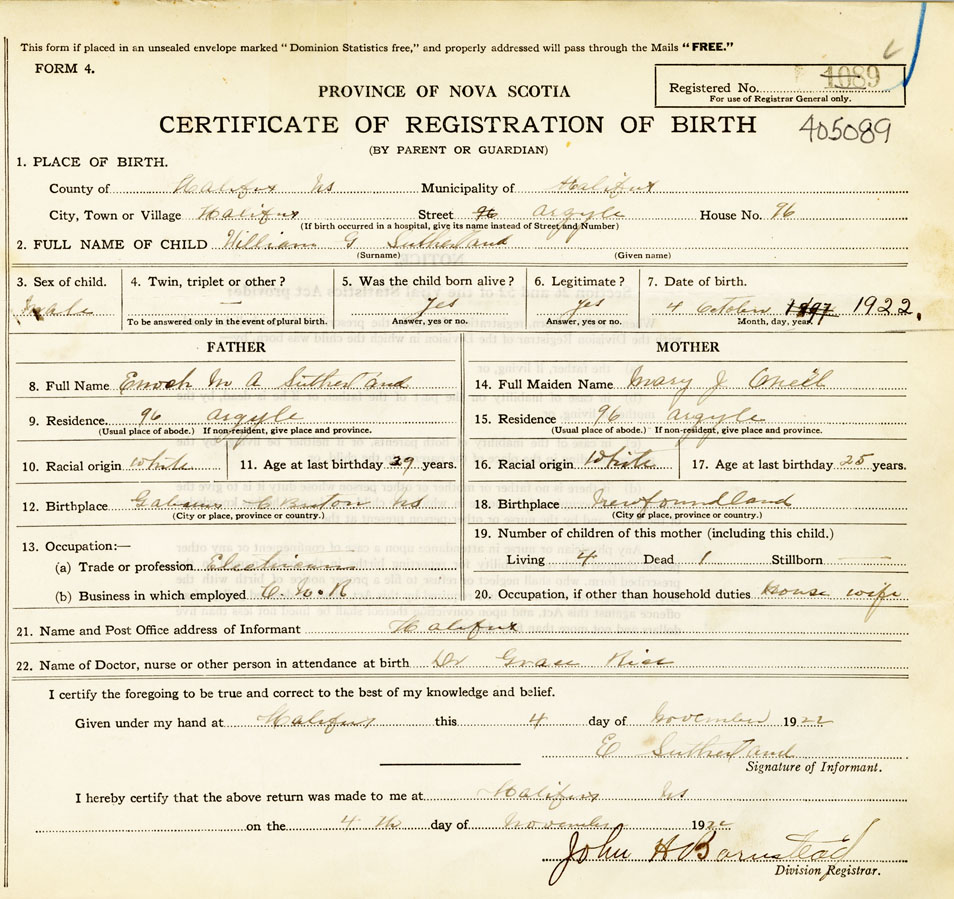 This form if placed in an unsealed envelope marked "Dominion Statistics free," and properly addressed will pass through the Mails "FREE."
FORM 4.
Registered No. 1089
For use of Registrar General only.
PROVINCE OF NOVA SCOTIA
CERTIFICATE OF REGISTRATION OF BIRTH 405089
(BY PARENT OR GUARDIAN)
1. PLACE OF BIRTH.
County of Halifax NS Municipality of Halifax
City, Town or Village Halifax Street 96 Argyle House No. 96
(If birth occurred in a hospital, give its name instead of Street and Number)
2. FULL NAME OF CHILD William G Sutherland
(Surname) (Given name)
3. Sex of child. 4. Twin, triplet or other? 5. Was the child born alive? 6. Legitimate? 7. Date of birth.
Male — Yes Yes 4 October 1897 1922.
To be answered only in the event of plural birth. Answer, yes or no. Answer, yes or no. Month, day, year.
FATHER MOTHER
8. Full Name Enoch M A Sutherland 14. Full Maiden Name Mary J Oneil
9. Residence. 96 Argyle 15. Residence 96 Argyle
(Usual place of abode.) If non-resident, give place and province. (Usual place of abode.) If non-resident, give place and province.
10. Racial origin White 11. Age at last birthday 29 years. 16. Racial origin White 17. Age at last birthday 25 years.
12. Birthplace C Breton NS 18. Birthplace Newfoundland
(City or place, province or country.) (City or place, province or country.)
19. Number of children of this mother (including this child.)
13. Occupation:—
Living 4 Dead 1 Stillborn —
(a) Trade or profession Electrician
(b) Business in which employed C. N. R 20. Occupation, if other than household duties House wife
21. Name and Post Office address of Informant Halifax
22. Name of Doctor, nurse or other person in attendance at birth Dr Grace Rice
I certify the foregoing to be true and correct to the best of my knowledge and belief.
Given under my hand at Halifax this 4 day of November 1922
E Sutherland
Signature of Informant.
I hereby certify that the above return was made to me at Halifax NS
on the 4 th day of November 1922
John H Barnstead
Division Registrar.